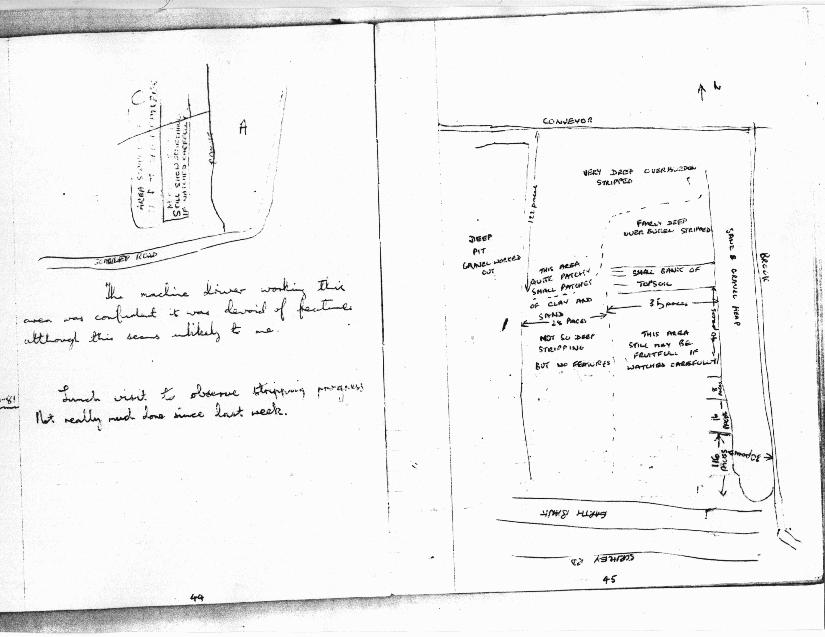 A
AREA
STILL SHOW SOMETHING
IF WATCHED CAREFULLY
The machine driver working this
area was confident it was devoid of features
although this seems unlikely to me.
Lunch visit to observe stripping progress
Not really much done since last week.
44
CONVEYOR
VERY DEEP OVERBURDEN
STRIPPED
122 paces
FAIRLY DEEP
OVERBURDEN STRIPPED
DEEP
PIT
GRAVEL WORKED
OUT
SAND & GRAVEL HEAP
BROOK
THIS AREA
QUITE PATCHY
SMALL PATCHES
OF CLAY AND
SAND
SMALL BANK OF
TOPSOIL
35 paces
28 PACES
40 paces
NOT SO DEEP
STRIPPING
BUT NO FEATURES
THIS AREA
STILL MAY BE
FRUITFULL IF
WATCHED CAREFULLY
8
16 PACES
116 PACES
EARTH BANK
45